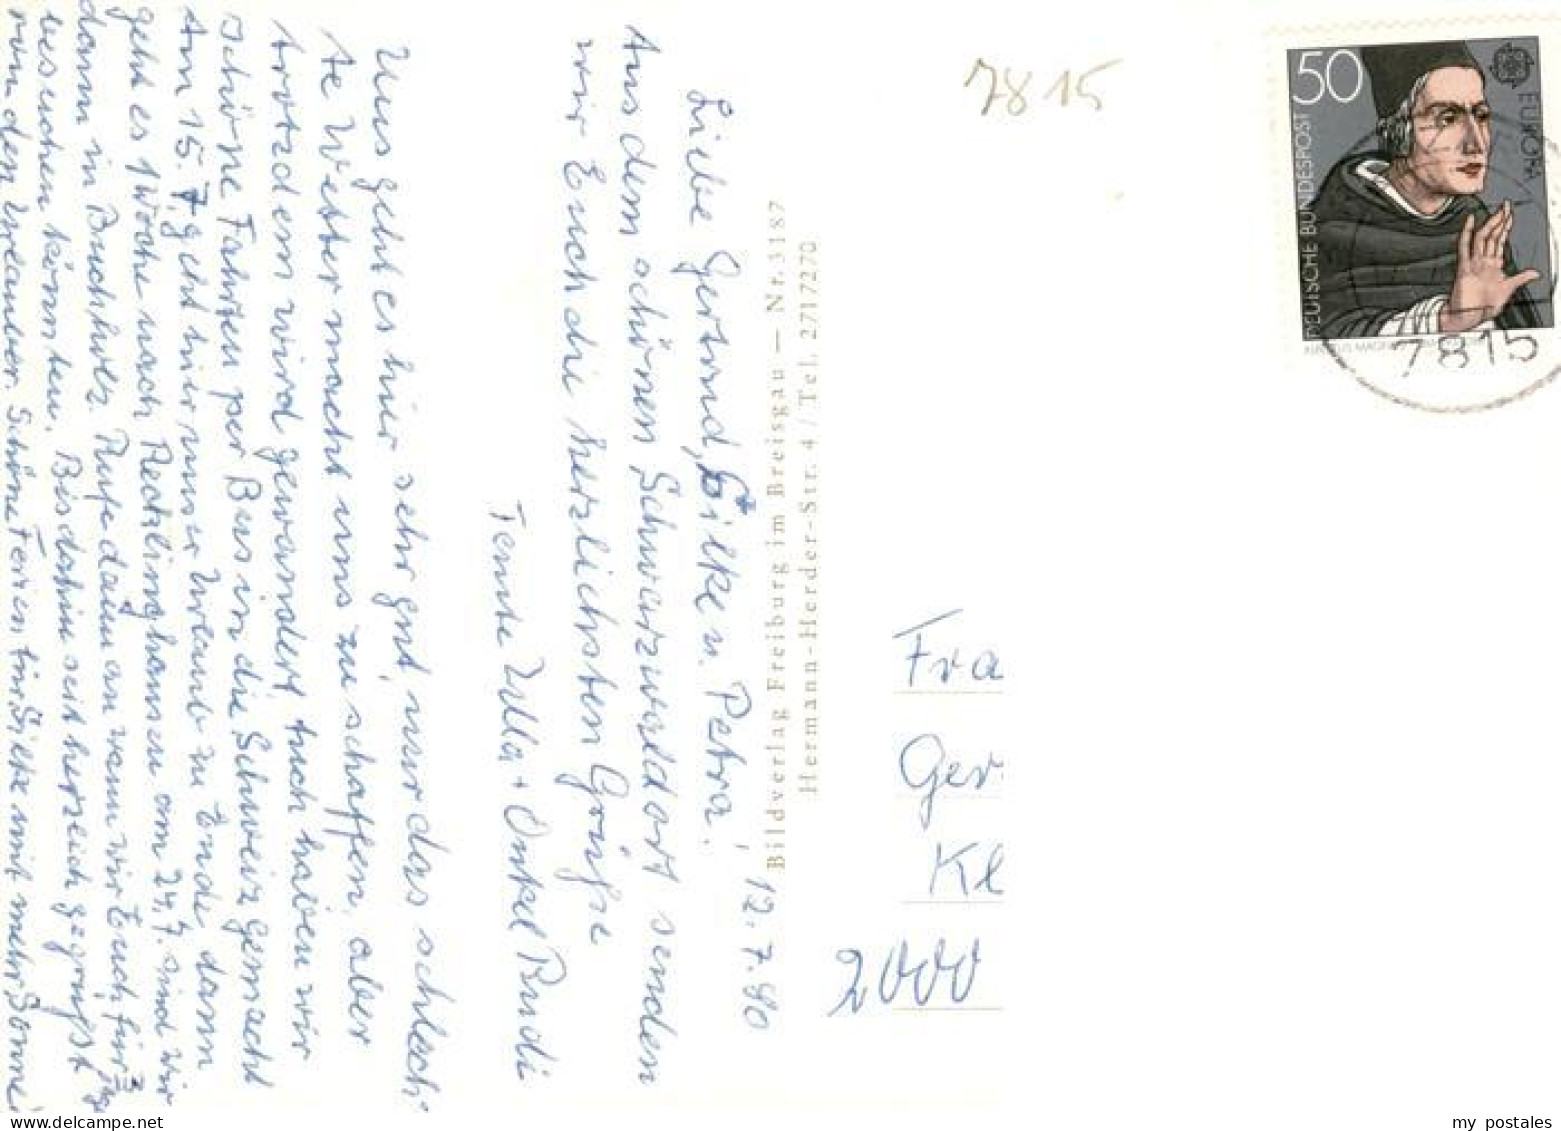 12.7.80
Liebe Gertrud, Silke u. Petra!
Aus dem schönen Schwarzwaldort senden
wir Euch die herzlichsten Grüße
Tante Ulla + Onkel Rudi
Uns geht es hier sehr gut, nur das schlech-
te Wetter macht uns zu schaffen, aber
trotzdem wird gewandert. Auch haben wir
schöne Fahrten per Bus in die Schweiz gemacht
Am 15.7. geht hier unser Urlaub zu Ende, dann
geht es 1 Woche nach Recklinghausen am 24.7. sind wir
dann in Buchholz. Rufe dann an wann wir Euch für
besuchen könnten. Bis dahin seit herzlich gegrüßt
von den Urlauber. Schöne Ferien für Silke mit mehr Sonne!
Bildverlag Freiburg im Breisgau — Nr. 3187
Hermann-Herder-Str. 4 / Tel. 2717270
7815
50
DEUTSCHE BUNDESPOST
EUROPA
7815
Fra
Ger
Kl
2000
my postales